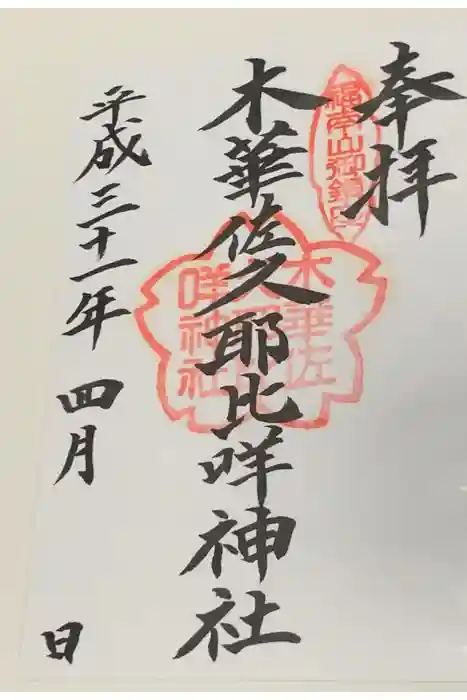 奉拝
木華佐久耶比咩神社
平成三十一年 四月 日
木華佐
久耶比
咩神社